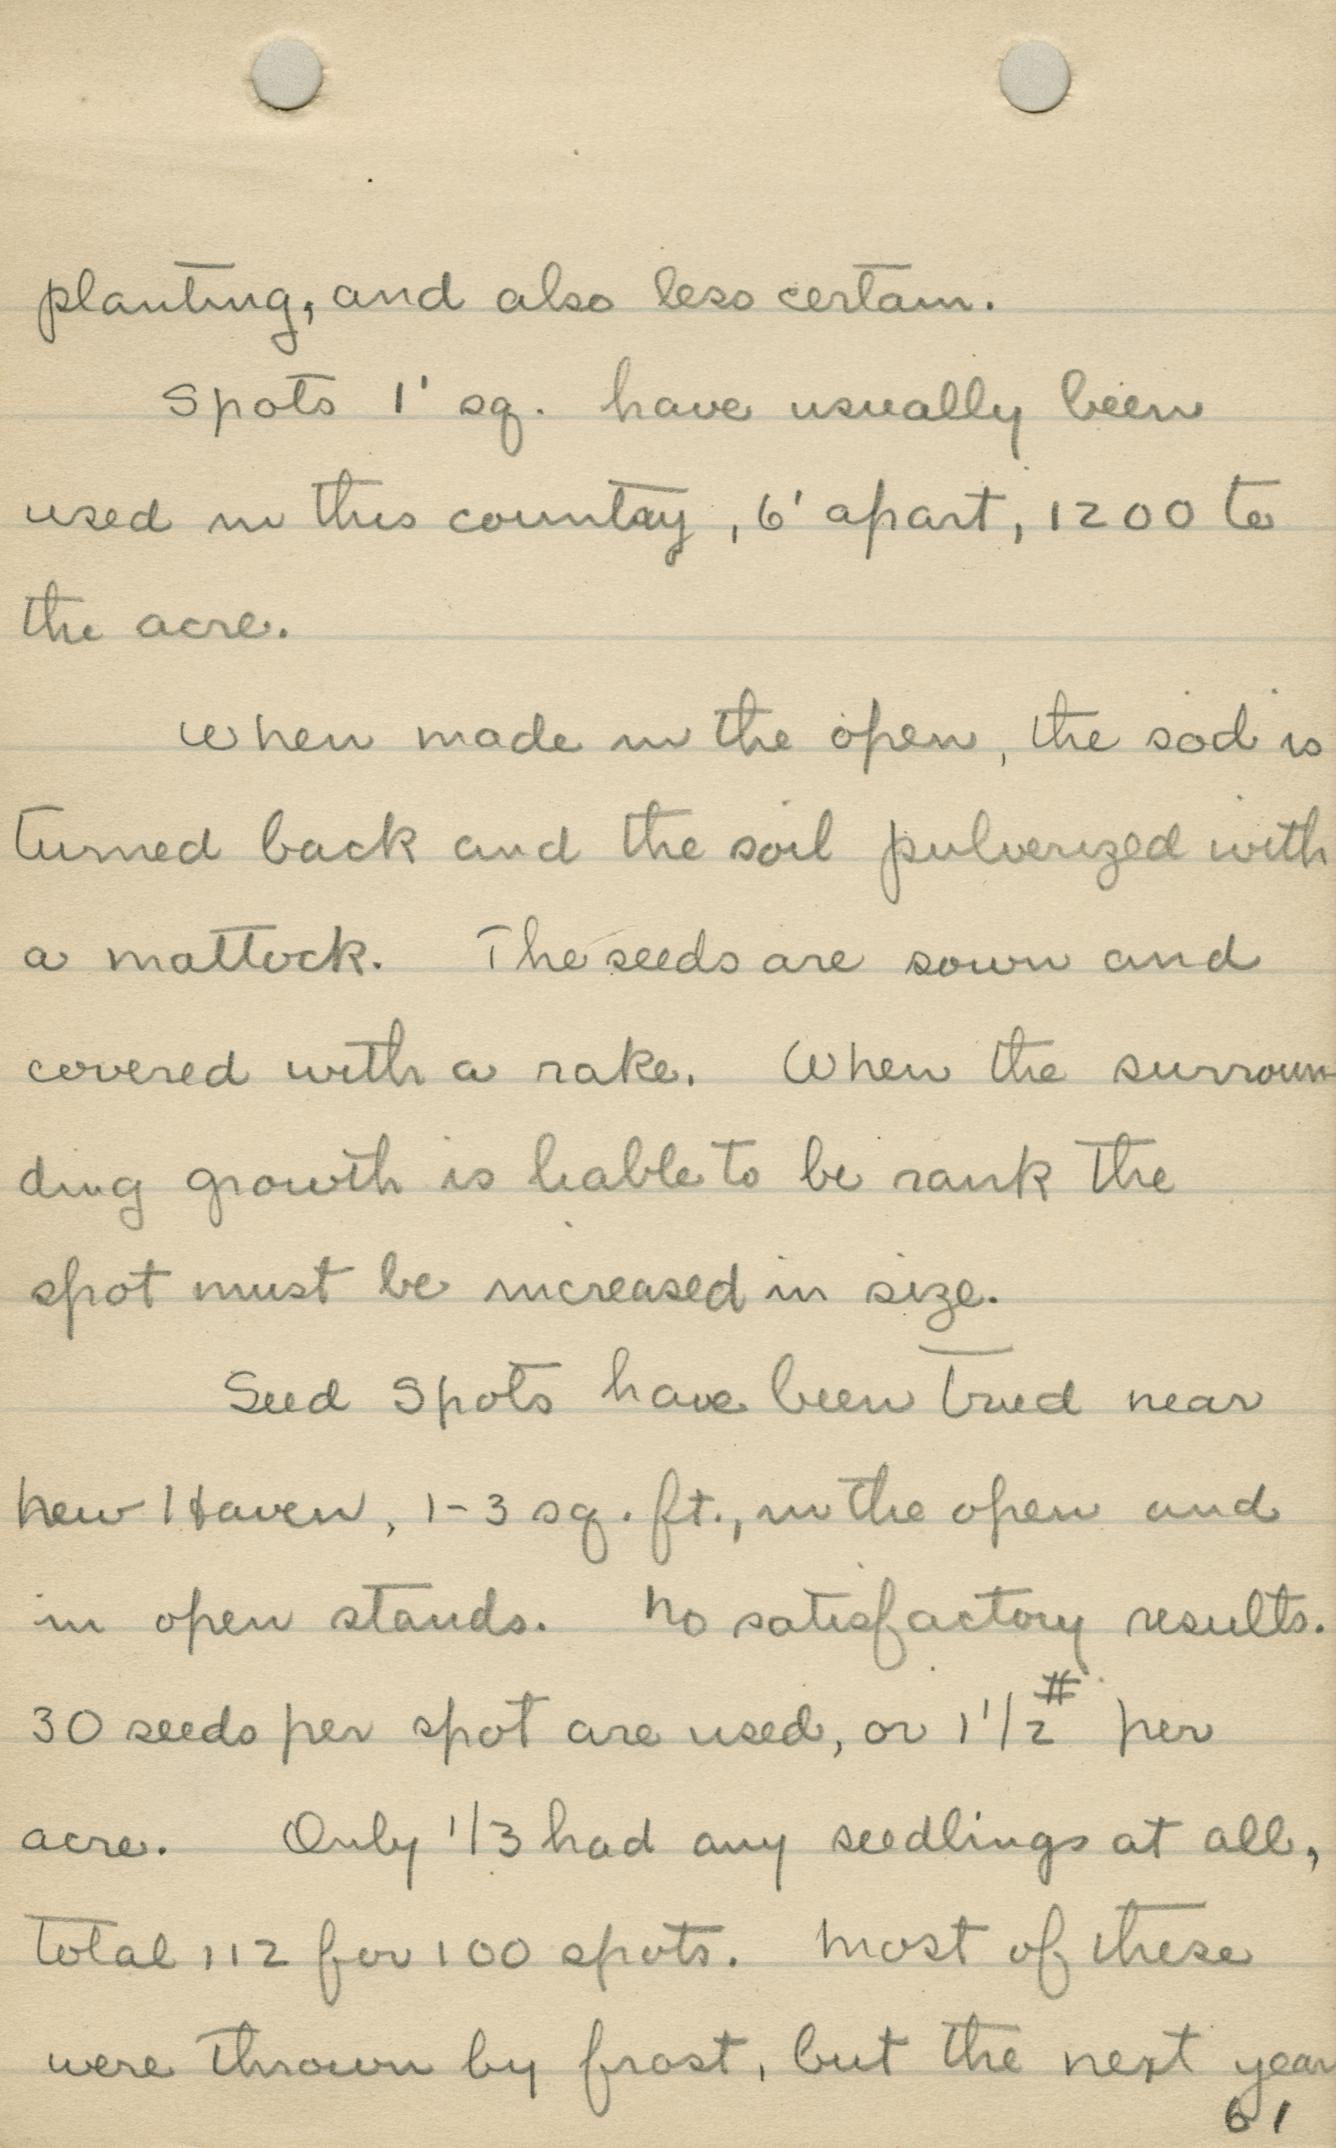 planting, and also less certain.
Spots 1' sq. have usually been
used in this country, 6' apart, 1200 to
the acre.
When made in the open, the sod is
turned back and the soil pulverized with
a mattock. The seeds are sown and
covered with a rake. When the surroun-
ding growth is liable to be rank the
spot must be increased in size.
Seed Spots have been tried near
New Haven, 1-3 sq. ft., in the open and
in open stands. No satisfactory results.
30 seeds per spot are used, or 1 1/2# per
acre. Only 1/3 had any seedlings at all,
total 112 for 100 spots. Most of these
were thrown by frost, but the next year
61